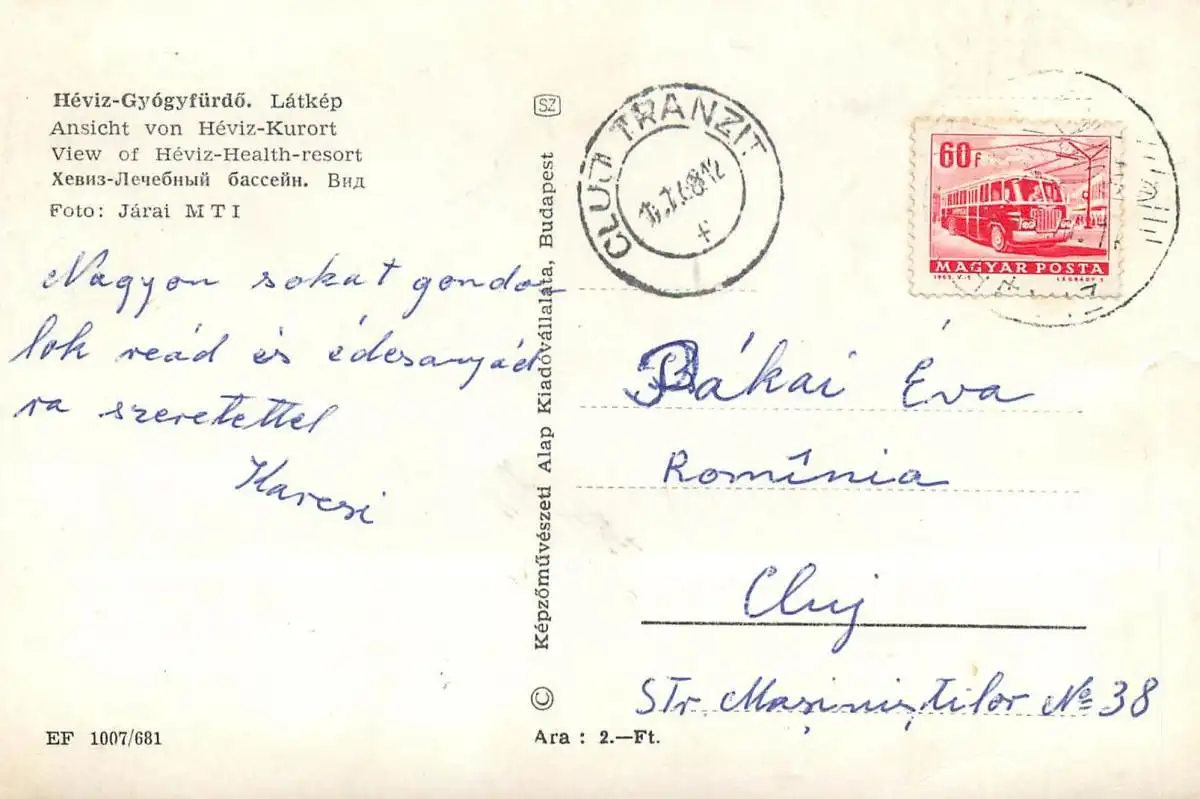 Héviz-Gyógyfürdő. Látkép
Ansicht von Héviz-Kurort
View of Héviz-Health-resort
Хевиз-Лечебный бассейн. Вид
Foto: Járai MTI
Nagyon sokat gondo
lok reád és édesanyád
ra szeretettel
Karcsi
EF 1007/681
SZ
Képzőművészeti Alap Kiadóvállalata, Budapest
©
Ara : 2.—Ft.
CLUJ TRANZIT
60f
MAGYAR POSTA
1963.V.T. LÉGRÁDY S.
Bákai Éva
Romînia
Cluj
Str. Mașiniștilor № 38